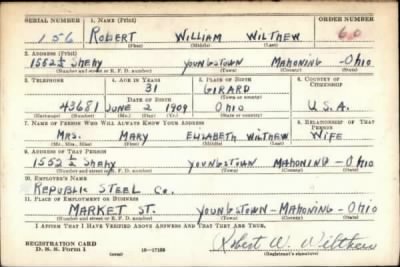 SERIAL NUMBER 1. NAME (Print) ORDER NUMBER
156 ROBERT WILLIAM WILTHEW 60
(First) (Middle) (Last)
2. ADDRESS (Print)
1552 1/2 SHEHY YOUNGSTOWN MAHONING - OHIO
(Number and street or R. F. D. number) (Town) (County) (State)
3. TELEPHONE 4. AGE IN YEARS 5. PLACE OF BIRTH 6. COUNTRY OF CITIZENSHIP
31 GIRARD
DATE OF BIRTH (Town or county)
43681 JUNE 2 1909 OHIO U.S.A.
(Exchange) (Number) (Mo.) (Day) (Yr.) (State or country)
7. NAME OF PERSON WHO WILL ALWAYS KNOW YOUR ADDRESS 8. RELATIONSHIP OF THAT PERSON
MRS. MARY ELIZABETH WILTHEW WIFE
(Mr., Mrs., Miss) (First) (Middle) (Last)
9. ADDRESS OF THAT PERSON
1552 1/2 SHEHY YOUNGSTOWN MAHONING - OHIO
(Number and street or R. F. D. number) (Town) (County) (State)
10. EMPLOYER'S NAME
REPUBLIC STEEL CO.
11. PLACE OF EMPLOYMENT OR BUSINESS
MARKET ST. YOUNGSTOWN - MAHONING - OHIO
(Number and street or R. F. D. number) (Town) (County) (State)
I AFFIRM THAT I HAVE VERIFIED ABOVE ANSWERS AND THAT THEY ARE TRUE.
REGISTRATION CARD
D. S. S. Form 1 16-17105 Robert W. Wilthew
(Registrant's signature)